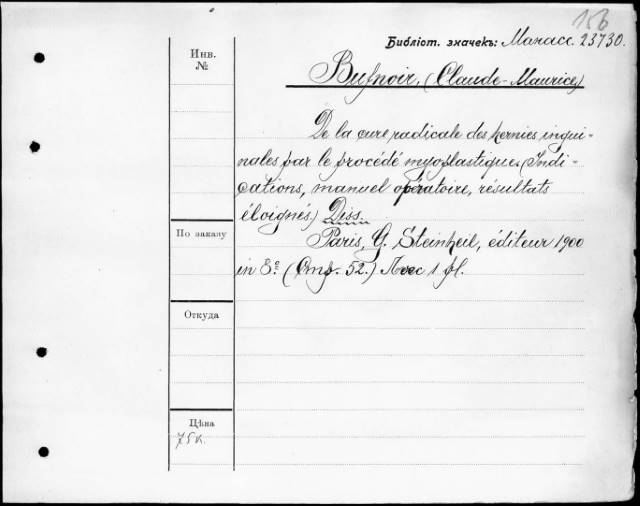 156
Библіот. значекъ: Манасс. 23730.
Инв.
№
Bufnoir, (Claude-Maurice)
De la cure radicale des hernies ingui-
nales par le procédé myoplastique (Indi-
cations, manuel opératoire, résultats
éloignés) Diss.
По заказу
Paris, G. Steinheil, éditeur 1900
in 8º. (Стр. 52.) Avec 1 pl.
Откуда
Цѣна
75к.